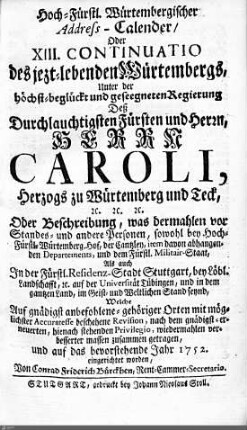 Hoch-Fürstl. Würtembergischer
Address-Calender/
Oder
XIII. CONTINUATIO
des jezt-lebenden Würtembergs,
Unter der
höchst-beglückt und geseegneten Regierung
Deß
Durchlauchtigsten Fürsten und Herrn,
HERRN
CAROLI,
Herzogs zu Würtemberg und Teck,
ꝛc. ꝛc. ꝛc.
Oder Beschreibung, was dermahlen vor
Standes- und andere Personen, sowohl bey Hoch-
Fürstl. Würtemberg. Hof, der Canzley, item davon abhangen-
den Departements, und dem Fürstl. Militair-Staat,
Als auch
In der Fürstl. Residenz-Stadt Stuttgart, bey Löbl.
Landschafft, ꝛc. auf der Universität Tübingen, und in dem
gantzen Land, im Geist- und Weltlichen Stand seynd,
Welche
Auf gnädigst anbefohlene, gehöriger Orten mit mög-
lichster Accuratesse beschehene Revision, nach dem gnädigst-er-
neuerten, hienach stehenden Privilegio, wiedermahlen ver-
besserter massen zusammen getragen,
und auf das bevorstehende Jahr 1752.
eingerichtet worden,
Von Conrad Friderich Bürckhen, Rent-Cammer-Secretario.
STUTGART, gedruckt bey Johann Nicolaus Stoll.